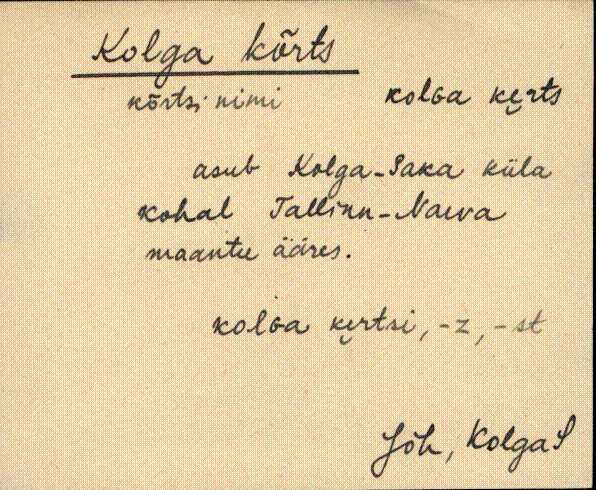 Kolga kõrts
kõrtsi nimi kolɢa ke̮rts
asub Kolga-Saka küla
kohal Tallinn-Narva
maantee ääres.
kolɢa ke̮rtsi, -z, -st
Jõh, KolgaS